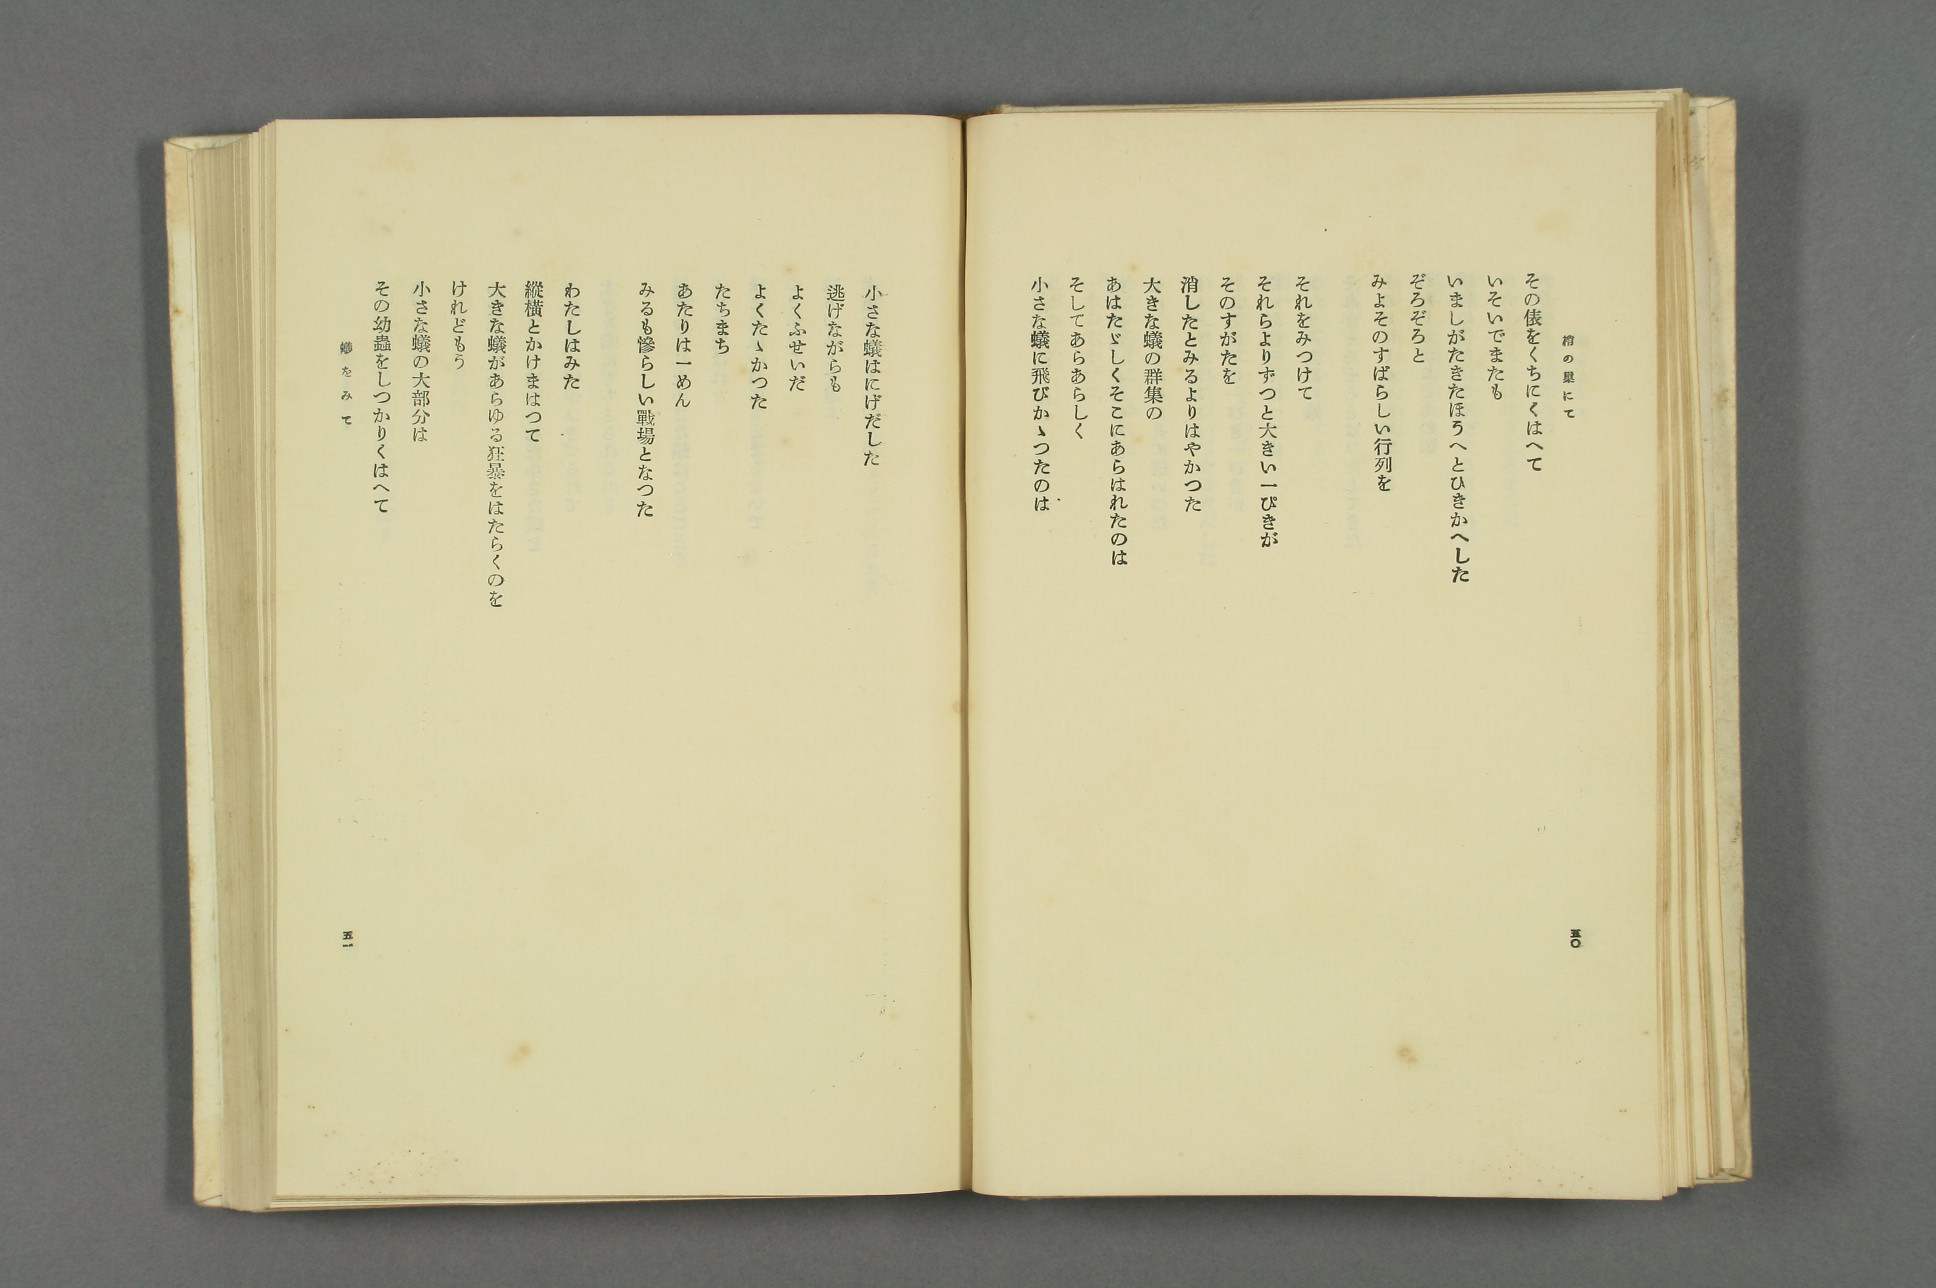 梢の巢にて
その俵をくちにくはへて
いそいでまたも
いましがたきたほうへとひきかへした
ぞろぞろと
みよそのすばらしい行列を
それをみつけて
それらよりずつと大きい一ぴきが
そのすがたを
消したとみるよりはやかつた
大きな蟻の群集の
あはたゞしくそこにあらはれたのは
そしてあらあらしく
小さな蟻に飛びかゝつたのは
五〇
小さな蟻はにげだした
逃げながらも
よくふせいだ
よくたゝかつた
たちまち
あたりは一めん
みるも慘らしい戰場となつた
わたしはみた
縱横とかけまはつて
大きな蟻があらゆる狂暴をはたらくのを
けれどもう
小さな蟻の大部分は
その幼蟲をしつかりくはへて
蟻をみて
五一